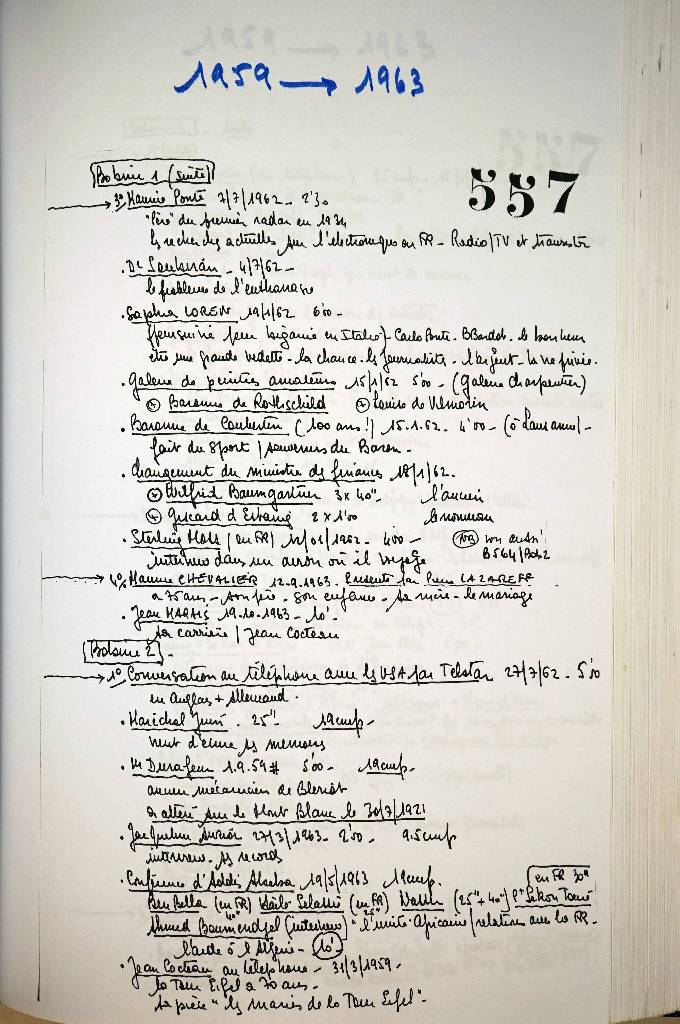 1959 → 1963
557
Bobine 1 (suite)
→ 3°/ Maurice Ponte 7/7/1962 - 2'30
"Père" du premier radar en 1934
les recherches actuelles sur l'électronique en FR - Radio/TV et transistor
• Dr Soubiran - 4/7/62 -
le problème de l'euthanasie
• Sophia LOREN 19/1/62 6'00 -
(poursuivie pour bigamie en Italie) - Carlo Ponti - B Bardot - le bonheur
être une grande vedette - la chance - les journalistes - l'argent - la vie privée.
• Galerie de peintres amateurs 15/1/62 5'00 - (Galerie Charpentier)
Baronne de Rothschild Louise de Vilmorin
• Baronne de Coubertin (100 ans!) 15.1.62 - 4'00 - (à Lausanne) -
fait du sport / souvenirs du Baron -
• Changement du ministre des finances 18/1/62.
Wilfrid Baumgartner 3 x 40" - l'ancien
Giscard d'Estaing 2 x 1'00 le nouveau
• Sterling Moss (en FR) 11/01/1962 - 4'00 - NB voir aussi
interview dans un avion où il voyage B564/Bob2
→ 4°/ Maurice CHEVALIER 12.9.1963. Présenté par Pierre LAZAREFF
a 75 ans - son père - son enfance - sa mère - le mariage
• Jean MARAIS 19.10.1963 - 10' -
sa carrière / Jean Cocteau
Bobine 2 -
→ 1°/ Conversation au téléphone avec les USA par Telstar 27/7/62 - 5'00
en Anglais + Allemand.
• Maréchal Juin. 25" 19cmp -
vient d'écrire ses mémoires
• M. 1.9.59 # 5'00 - 19cmp -
ancien mécanicien de Blériot
a atterri sur le Mont Blanc le 30/7/1921
• Jacqueline Auriol 27/3/1963 - 2'00 - 9.5cmp
interview - ses records
• Conférence d'Addis Abeba 19/5/1963 19cmp. en FR 30"
Ben Bella (en FR) Hailé Sélassié (en FR) Nasser (25" + 40") Pt Sekou Touré
40" 25"
Ahmed Boumendjel (interview) "l'unité Africaine / relations avec la FR -
l'aide à l'Algérie - 10'
• Jean Cocteau au téléphone - 31/3/1959 -
la Tour Eiffel a 70 ans -
sa pièce "les mariés de la Tour Eiffel" -